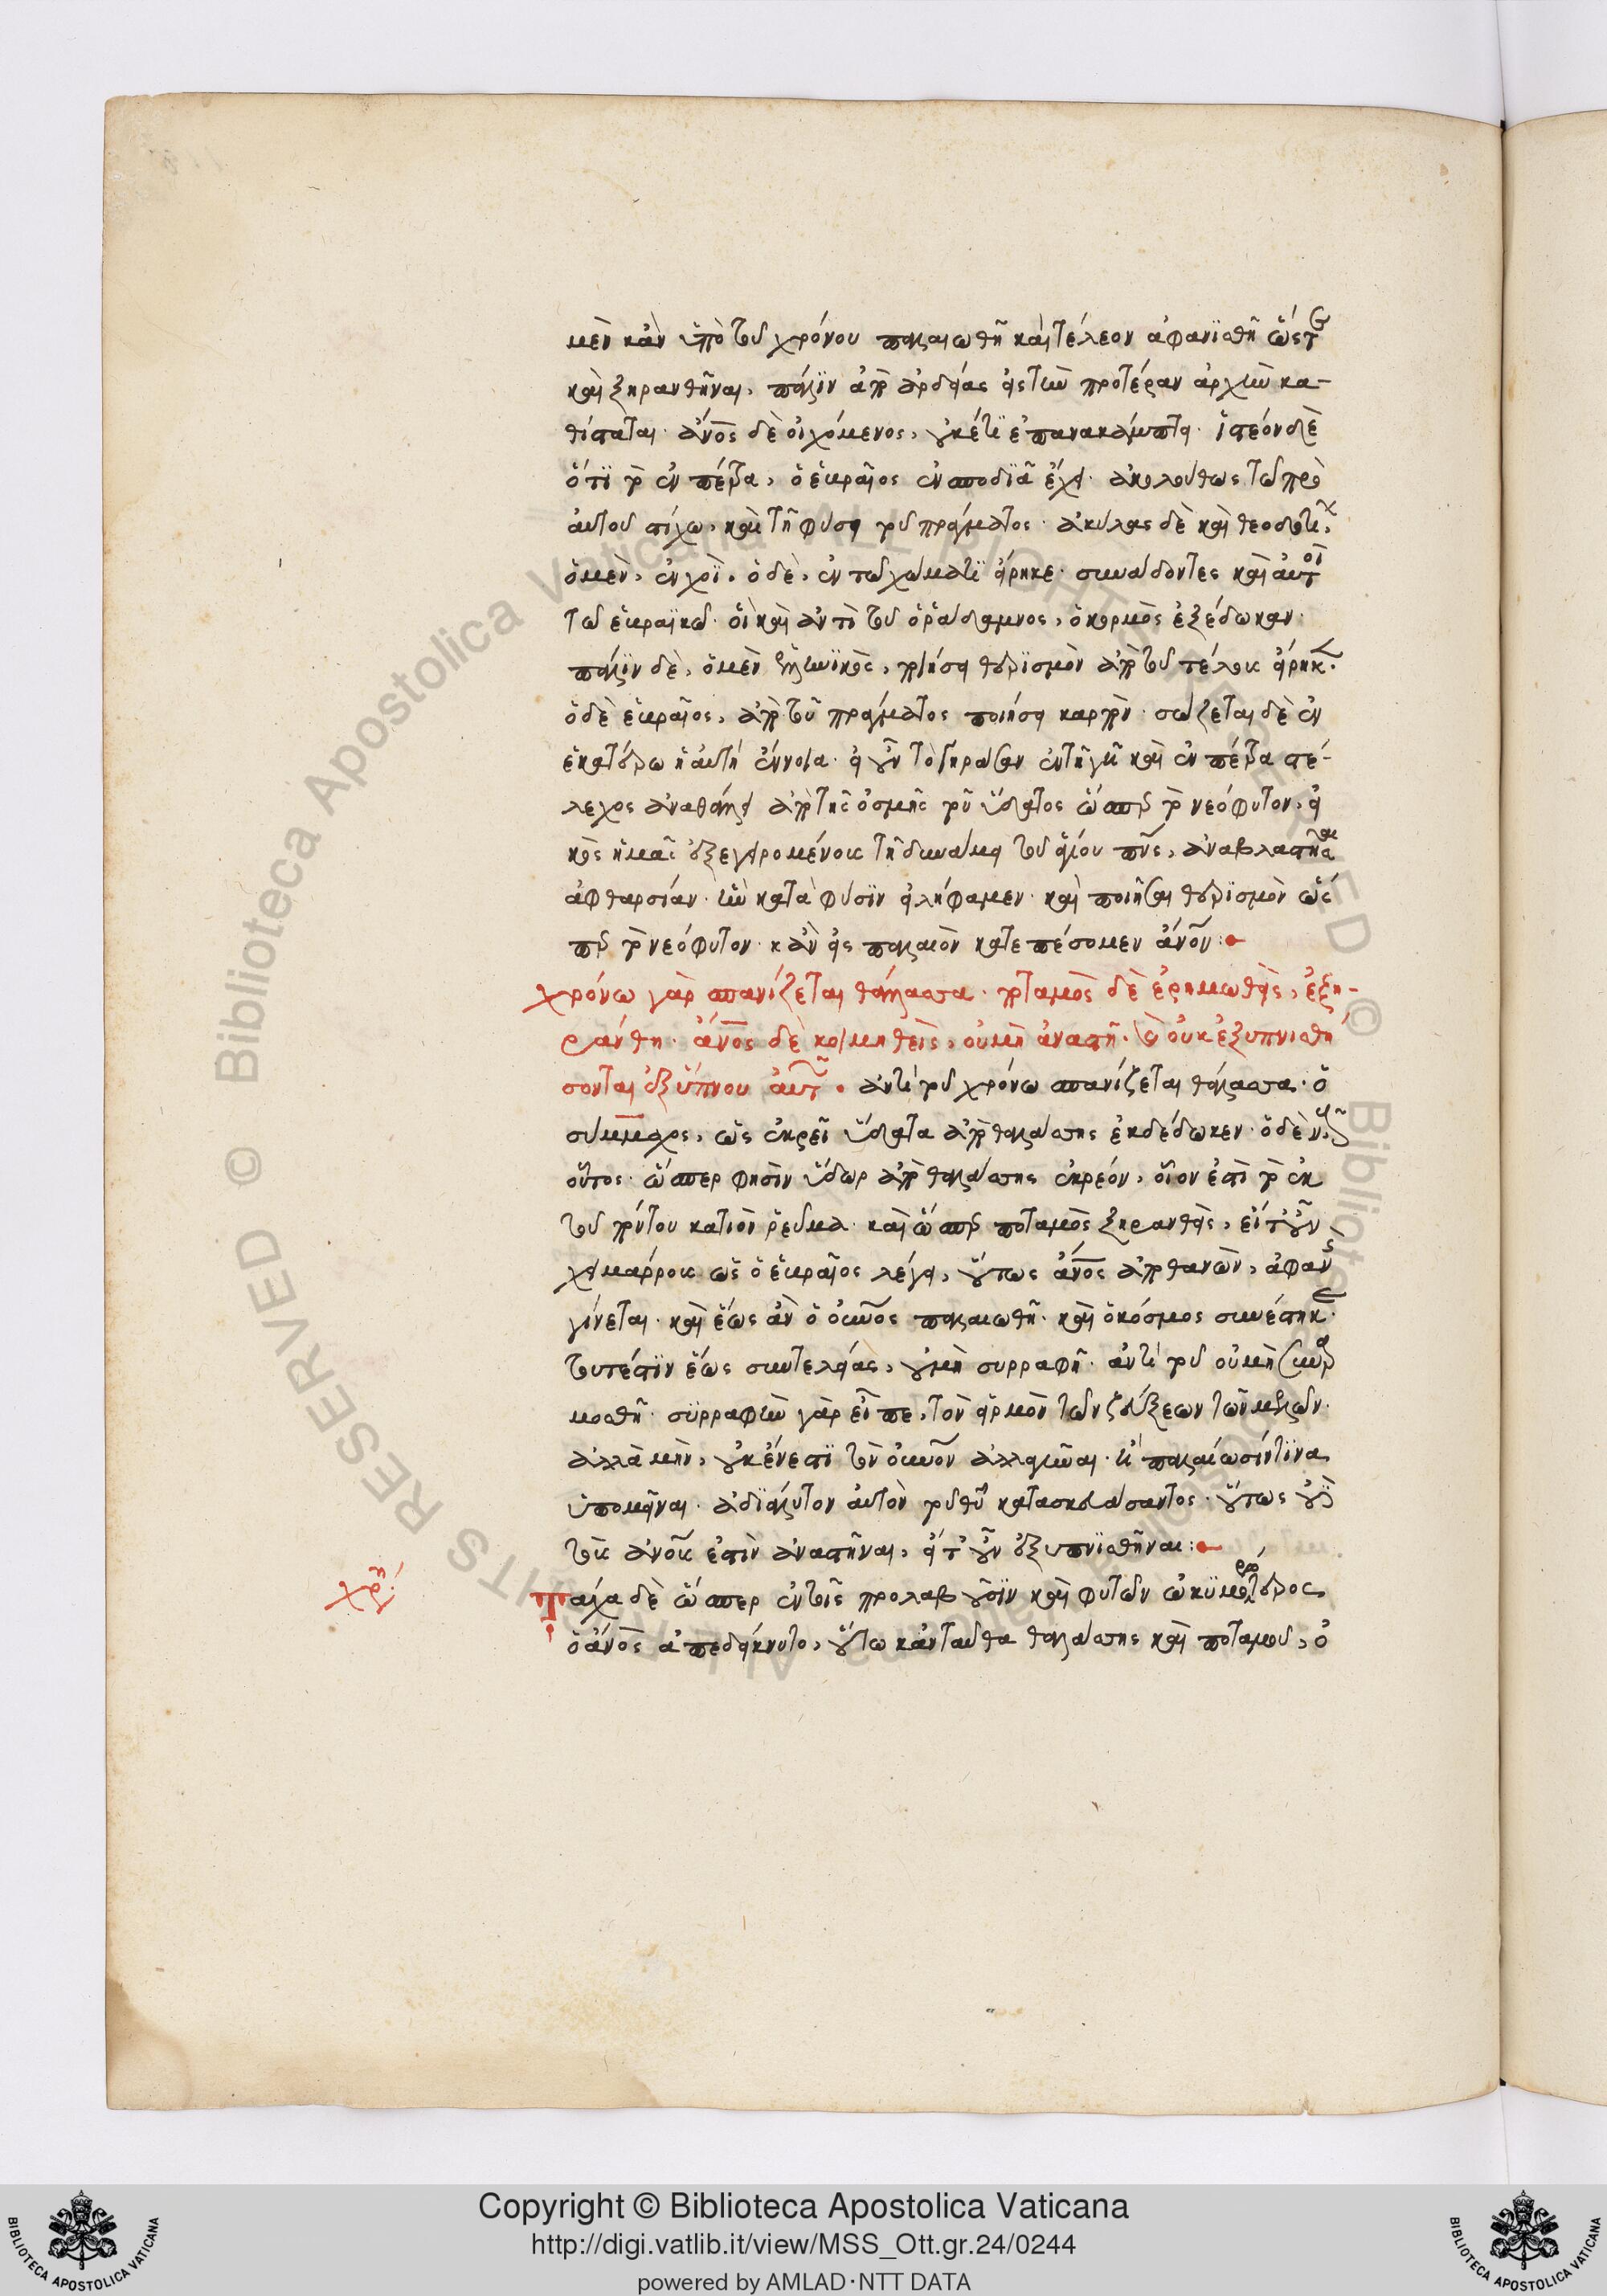 μὲν κἂν ὑπὸ τοῦ χρόνου παλαιωθῆ καὶ τέλεον ἀφανισθῆ ὥστε
καὶ ξηρανθῆναι, πάλιν ἀπὸ ἀρδείας εἰς τὴν προτέραν ἀρχὴν κα-
θίσταται. ἄνος δὲ οἰχόμενος, οὐκέτι ἐπανακάμπτει. ἰστέον δὲ
ὅτι τὸ ἐν πέτρα, ὁ ἑβραῖος ἐν σποδιᾶ ἔχει. ἀκολούθως τῶ πρὸ
αὐτοῦ στίχω, καὶ τῆ φύσει τοῦ πράγματος. ἀκύλας δὲ καὶ θεοδοτι,
ὁ μὲν, ἐν χοῒ. ὁ δὲ, ἐν τῶ χώματι εἴρηκε. συνάδοντες καὶ αὐτοὶ
τῶ ἑβραϊκῶ. οἳ καὶ ἀντὶ τοῦ ὁ ῥάδαμνος, ὁ κορμὸς ἐξέδωκαν.
πάλιν δὲ, ὁ μὲν ἑλληνικὸς, ποιήσει θερισμὸν ἀπὸ τοῦ τέλους εἴρηκε.
ὁ δὲ ἑβραῖος, ἀπὸ τοῦ πράγματος ποιήσει καρπὸν. σώζεται δὲ ἐν
ἑκατέρω ἡ αὐτὴ ἔννοια. εἰ οὖν τὸ γηράσαν ἐν τῆ γῆ καὶ ἐν πέτρα στέ-
λεχος ἀναθάλλει ἀπὸ τῆς ὀσμῆς τοῦ ὕδατος ὥσπερ τὸ νεόφυτον, εἰ
κὸς ἡμᾶς ἐξεγειρομένους τῆ δυνάμει τοῦ ἁγίου πνς, ἀναβλαστῆσαι
ἀφθαρσίαν. ἣν κατὰ φύσιν εἰλήφαμεν. καὶ ποιῆσαι θερισμὸν ὥσ
περ τὸ νεόφυτον. κἂν εἰς παλαιὸν κατεπέσομεν ἄνον:
χρόνω γὰρ σπανίζεται θάλασσα. ποταμὸς δὲ ἐρημωθεὶς, ἐξη-
ράνθη. ἄνος δὲ κοιμηθεὶς, οὐ μὴ ἀναστῆ. καὶ οὐκ ἐξυπνισθή
σονται ἐξ ὕπνου αὐτῶν. ἀντὶ τοῦ χρόνω σπανίζεται θάλασσα. ὁ
σύμμαχος, ὡς ἐκρεῖ ὕδατα ἀπὸ θαλάσσης ἐκδέδωκεν. ὁ δὲ νοῦς
οὗτος. ὥσπερ φησὶν ὕδωρ ἀπὸ θαλάσσης ἐκρέον, οἷον ἐστὶ τὸ ἐκ
τοῦ πόντου κατιὸν ῥεῦμα. καὶ ὥσπερ ποταμὸς ξηρανθεὶς, εἴτουν
χειμάρρους ὡς ὁ ἑβραῖος λέγει, οὕτως ἄνος ἀποθανὼν, ἀφανὴς
γίνεται. καὶ ἕως ἂν ὁ οὐνος παλαιωθῆ. καὶ ὁ κόσμος συνέστηκε.
τουτέστιν ἕως συντελείας, οὐ μὴ συρραφῆ. ἀντὶ τοῦ οὐ μὴ συναρ
μοσθῆ. συρραφὴν γὰρ εἶπε, τὸν εἱρμὸν τῶν ζεύξεων τῶν μελῶν.
ἀλλὰ μὴν, οὐκ ἔνεστι τὸν οὐνον ἀλλαγῆναι. ἢ παλαίωσίν τινα
ὑπομεῖναι. ἀδιάλυτον αὐτὸν τοῦ θυ κατασκευάσαντος. οὕτως οὐδὲ
τοῖς ἀνοις ἐστὶν ἀναστῆναι, εἴτουν ἐξυπνισθῆναι:
Τάχα δὲ ὥσπερ ἐν τοῖς προλαβοῦσιν καὶ φυτῶν ὠκυμορώτερος
ὁ ἄνος ἀπεδείκνυτο, οὕτω κἀνταῦθα θαλάσσης καὶ ποταμοῦ, ὁ
Copyright © Biblioteca Apostolica Vaticana
http://digi.vatlib.it/view/MSS_Ott.gr.24/0244
powered by AMLAD·NTT DATA
BIBLIOTECA APOSTOLICA VATICANA
BIBLIOTECA APOSTOLICA VATICANA